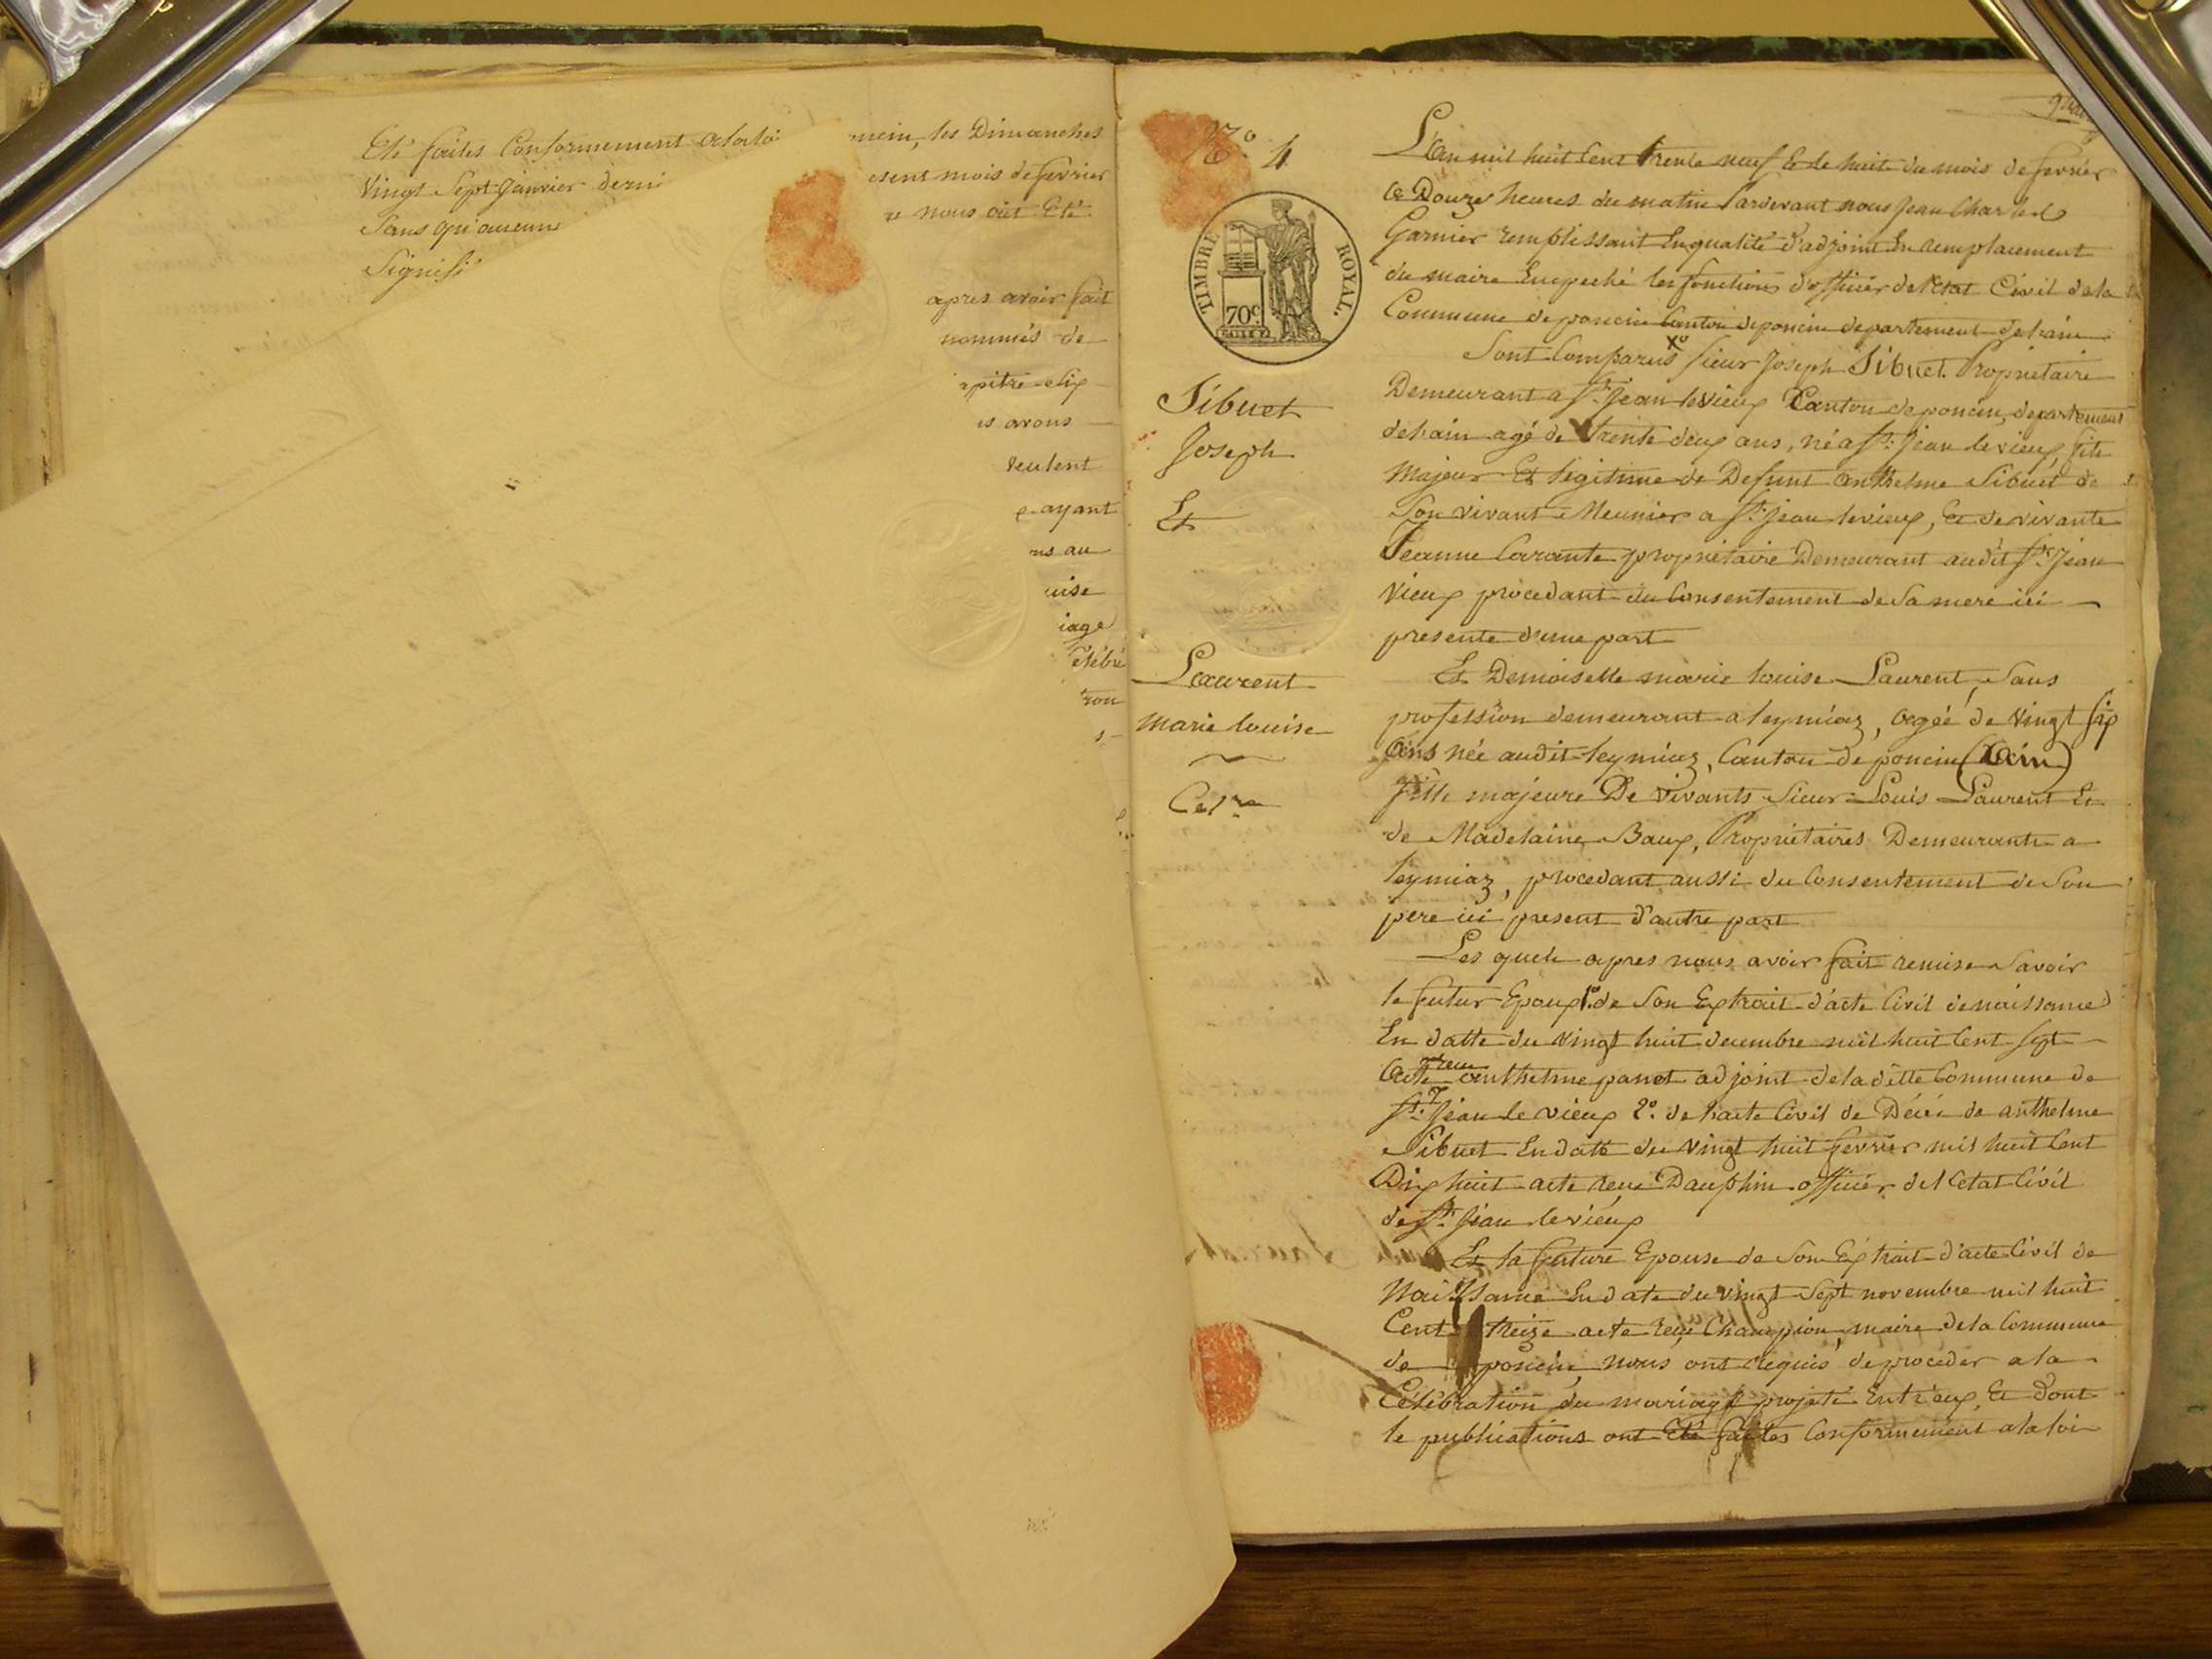 Eté faites Conformement alaloi
Vingt Sept Janvier derni
Sans qu'aucune
Signifi
mein, les Dimanches
esent mois de fevrier
re nous ait Eté
apres avoir fait
nommés de
apitre Six
is avons
veulent
ayant
ns au
uise
iage
élébré
N° 4
TIMBRE ROYAL.
70c
Sibuet
Joseph
Et
Laurent
Marie Louise
Cel.re
L'an mil huit Cent trente neuf Et le huit du mois de fevrier
a Douze heures du matin Pardevant nous Jean Charles
Garnier remplissant Enqualité d'adjoint En remplacement
du maire Empeché les fonctions d'officier de l'Etat Civil dela
Commune deponcin Canton deponcin departement delain
Sont Comparus Sieur Joseph Sibuet Propriétaire
Demeurant a St Jean levieux Canton deponcin, departement
delain agé de trente deux ans, né a St Jean levieux, fils
Majeur Et legitime de Defunt anthelme Sibuet de
Son vivant Meunier a St Jean levieux, Et de vivante
Jeanne Carante propriétaire Demeurant audit St Jean
Vieux procedant du Consentement de Sa mere ici
presente d'une part
Et Demoiselle marie louise Laurent, Sans
profession demeurant a leymiaz, agée de Vingt Six
Ans née audit leymiaz, Canton de poncin (Ain)
fille majeure De vivants Sieur Louis Laurent Et
de Madelaine Baux, Propriétaires Demeurants a
leymiaz, procedant aussi du Consentement de Son
pere ici present d'autre part
Les quels apres nous avoir fait remise Savoir
le futur Epoux 1° de Son Extrait d'acte Civil denaissance
En datte du Vingt huit decembre mil huit Cent Sept
Acte recu anthelme panet adjoint deladitte Commune de
St Jean le vieux 2° de l'acte Civil de Décés de anthelme
Sibuet En datte du Vingt huit fevrier mil huit Cent
Dix huit acte reçu Dauphin officier del'Etat Civil
de St Jean levieux
Et la future Epouse de Son Extrait d'acte Civil de
Naissance En date du vingt Sept novembre mil huit
Cent treize acte reçu Champion, maire dela Commune
de poncin, nous ont requis de proceder a la
Célébration du mariage projeté Entr'eux, Et dont
le publications ont Eté faites Conformement alaloi